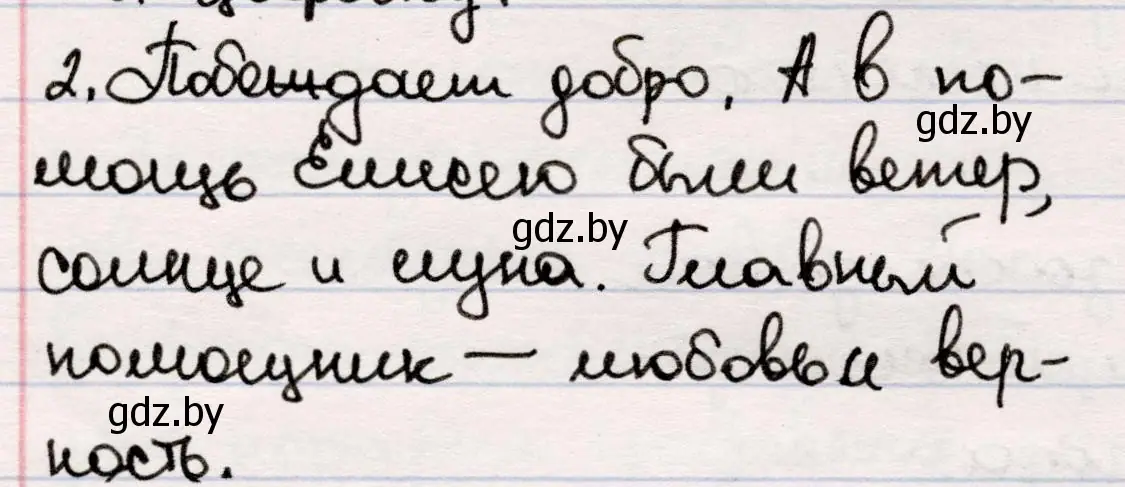 2. Побеждает добро. А в по-
gdz.by
мощь Елисею были ветер,
gdz.by
солнце и луна. Главный
помощник — любовь и вер-
gdz.by
ность.